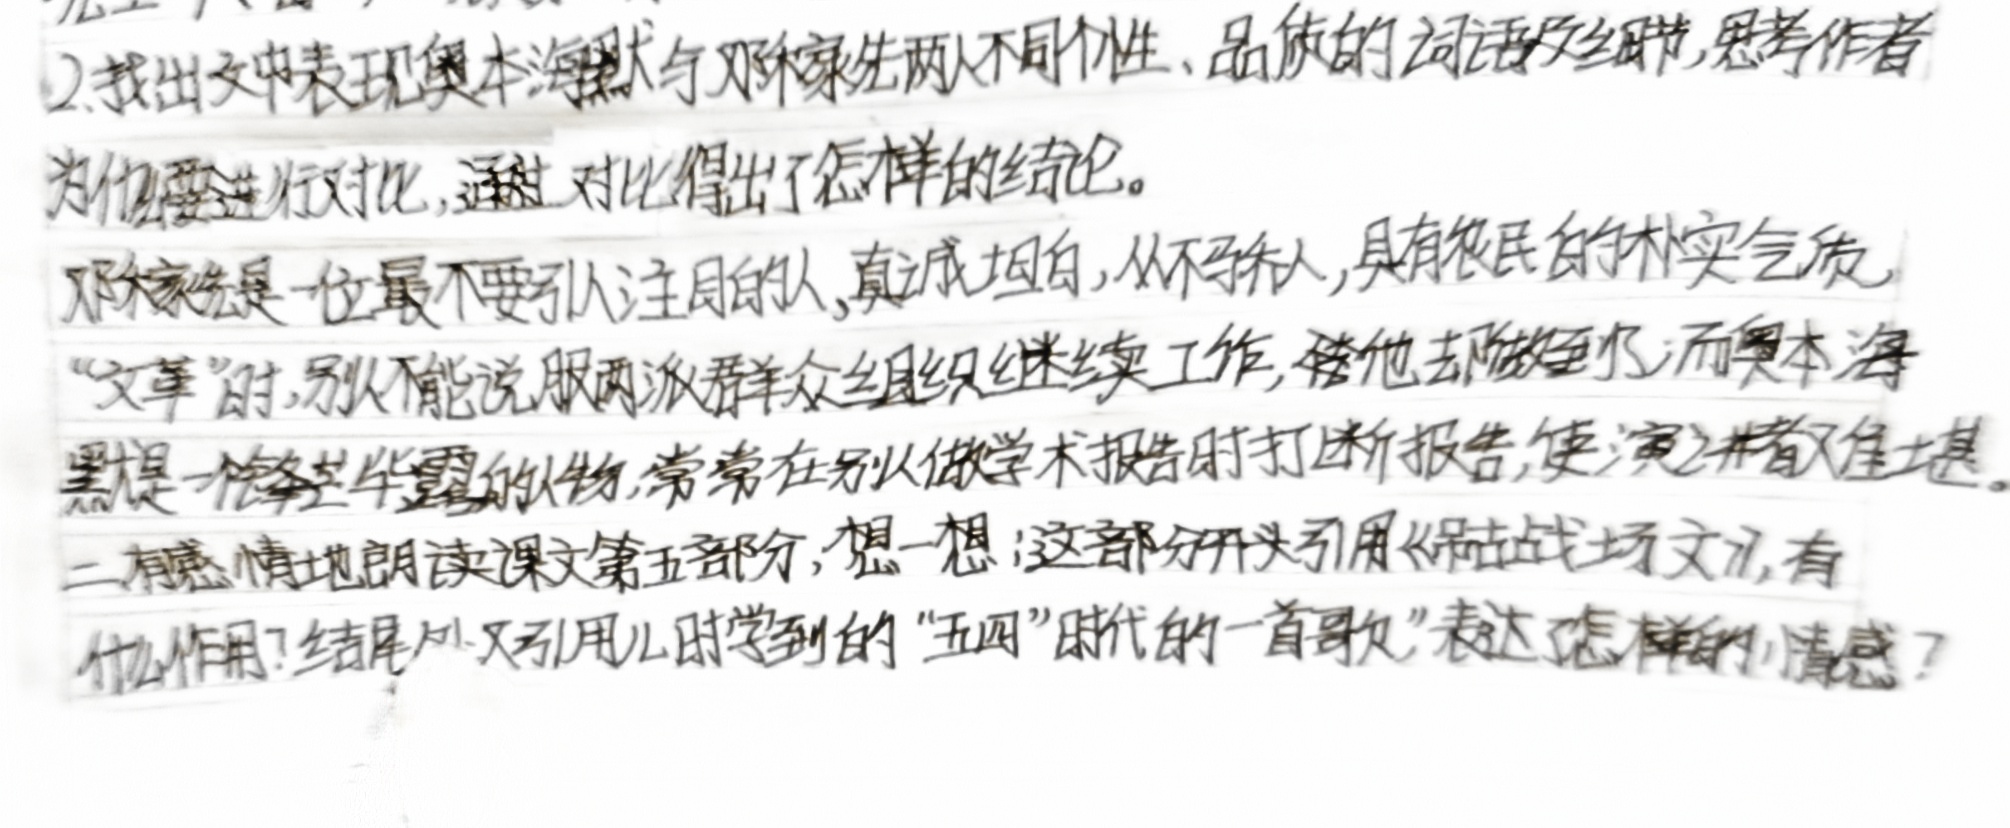 2.找出文中表现奥本海默与邓稼先两人不同个性、品质的词语及细节,思考作者
为什么要进行对比,通过对比得出了怎样的结论。
邓稼先是一位最不要引人注目的人,真诚坦白,从不骄人,具有农民的朴实气质,
“文革”时,别人不能说服两派群众组织继续工作,他去却做到了;而奥本海
默是一个锋芒毕露的人物,常常在别人做学术报告时打断报告,使演讲者难堪。
二.有感情地朗读课文第五部分,想一想;这部分开头引用《吊古战场文》,有
什么作用?结尾处又引用儿时学到的“五四”时代的一首歌又”表达了怎样的情感?